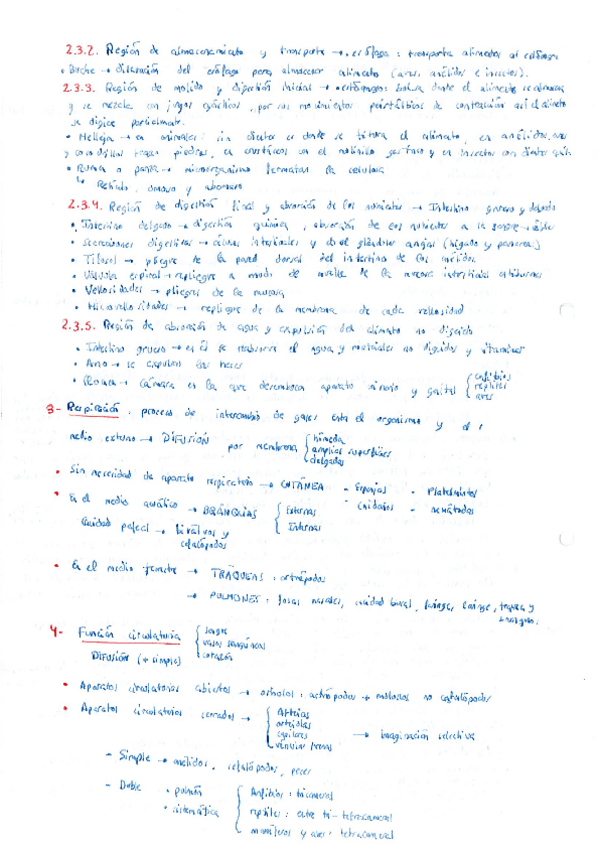 2.3.2. Región de almacenamiento y transporte → esófago: transporta alimentos al estómago
• Buche → dilatación del esófago para almacenar alimento (aves, anélidos e insectos).
2.3.3. Región de molido y digestión inicial → estómagos donde el alimente se almacena
y se mezcla con jugos gástricos, por sus movimientos peristálticos de contracción así el alimento
se digiere parcialmente.
• Molleja → en animales sin dientes es donde se tritura el alimento, en anélidos, aves
y cocodrilos tragan piedras, en crustáceos es el molinillo gástrico y en insectos con dientes
• Rumen o panza → microorganismo fermentan la celulosa
↳ Retículo, omaso y abomaso
2.3.4. Región de digestión final y absorción de los nutrientes → Intestino grueso y delgado
• Intestino delgado → digestión química, absorción de los nutrientes a la sangre
• Secreciones digestivas → células intestinales y de glándulas anejas (hígado y páncreas)
• Tiflosol → pliegue de la pared dorsal del intestino de los anélidos
• Válvula espiral → repliegue a modo de muelle de la mucosa intestinal
• Vellosidades → pliegues de la mucosa
• Microvellosidades → repliegues de la membrana de cada vellosidad
2.3.5. Región de absorción de agua y expulsión del alimento no digerido
• Intestino grueso → en él se reabsorve el agua y materiales no digeridos y vitaminas
• Ano → se expulsan las heces
• Cloaca → cámara en la que desembocan aparato urinario y genital { anfibios
reptiles
aves
3- Respiración: proceso de intercambio de gases entre el organismo y el
medio externo → DIFUSIÓN por membrana { húmeda
amplias superficies
delgadas
• Sin necesidad de aparato respiratorio → CUTÁNEA - Esponjas - Platelmintos
- Cnidarios - nemátodos
• En el medio acuático → BRÁNQUIAS { Externas
Internas
Cavidad paleal → bivalvos y
cefalópodos
• En el medio terrestre → TRÁQUEAS: artrópodos
→ PULMONES: fosas nasales, cavidad bucal, faringe, laringe, traquea y
4- Función circulatoria { sangre
vasos sanguíneos
corazón
DIFUSIÓN (+ simples)
• Aparatos circulatorios abiertos → artrópodos + moluscos no cefalópodos
• Aparatos circulatorios cerrados → { Arterias
arteriolas
capilares
vénulas venas
→ imaginación selectiva
- Simple → anélidos, cefalópodos, peces
- Doble • pulmón
• sistemática
{ Anfibios: tricameral
reptiles: entre tri- tetracameral
mamíferos y aves: tetracameral